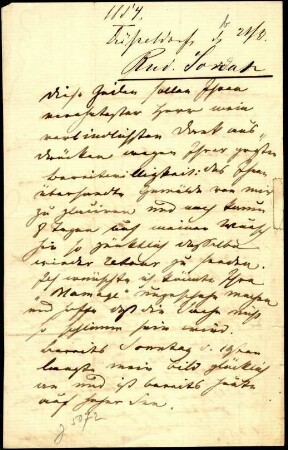 1154.
Düsseldorf d. 21/8.
Rud. Jordan
Diese Zeilen sollen Ihnen
verehrtester Herr mein
verbindlichsten Dank aus-
drücken wegen Ihrer großen
Bereitwilligkeit: das Ihnen
übersandte Gemälde von mir
zu und nach kaum
8 Tagen auf meinen Wunsch
hin so pünktlich dasselbe
wieder retour zu senden.
Ich wünschte ich könnte Ihnen
machen
und hoffe daß die Sache nicht
so schlimm sein wird.
Bereits Sonntag d. 19ten
langte mein Bild glücklich
an und ist bereits heute
auf hoher See.